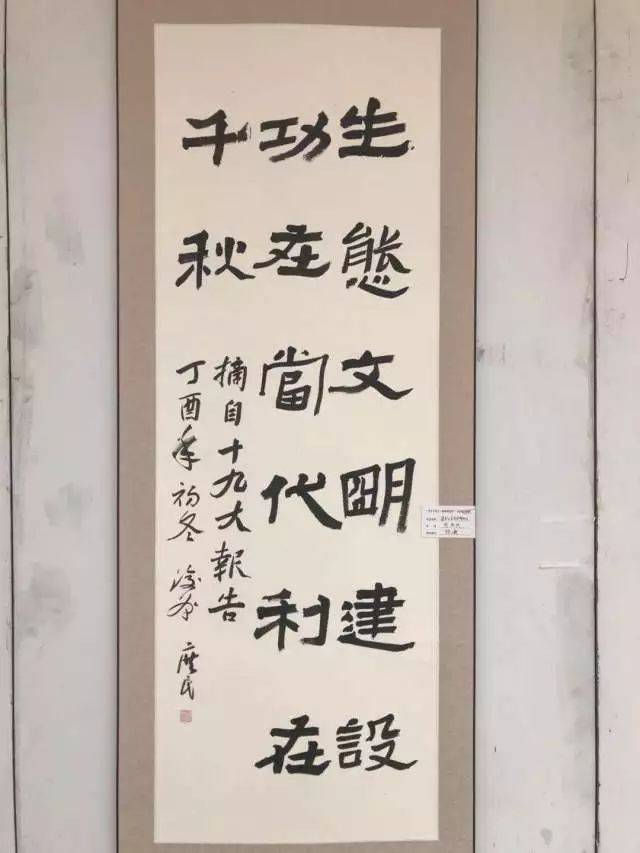 生態文朙建設
功在當代利在
千秋
摘自十九大報告
丁酉年初冬
庶民